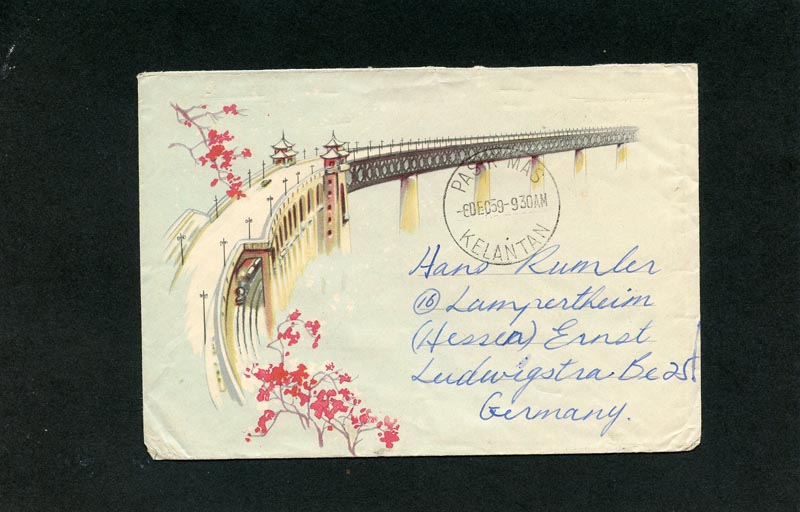 PASIR MAS
-6DEC59-930AM
KELANTAN
Hans Rumler
16 Lampertheim
(Hessen) Ernst
Ludwigstra.Be 25
Germany.